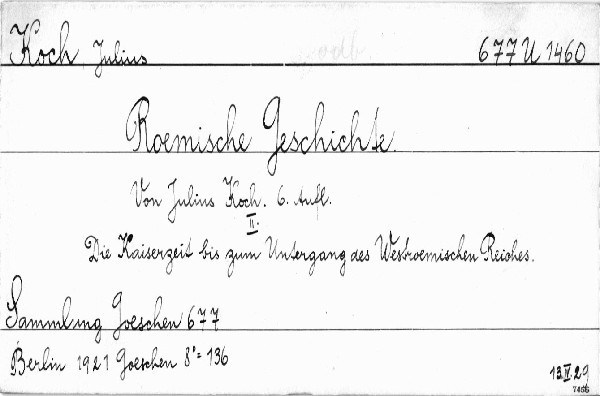 Koch Julius 677 U 1460
Roemische Geschichte.
Von Julius Koch. 6. Aufl.
II.
Die Kaiserzeit bis zum Untergang des Westroemischen Reiches.
Sammlung Goeschen 677
Berlin 1921 Goeschen 8°= 136
13 IV. 29